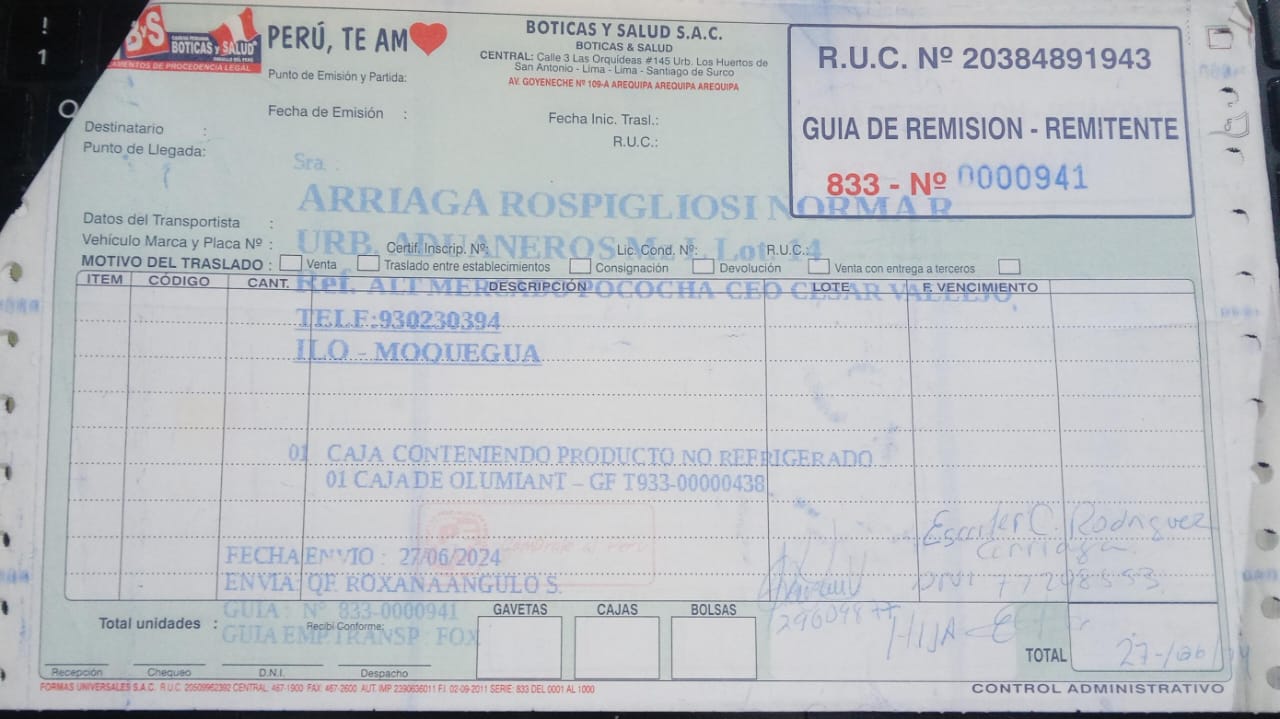 ByS
BOTICAS y SALUD
MEDICAMENTOS DE PROCEDENCIA LEGAL
PERÚ, TE AM
BOTICAS Y SALUD S.A.C.
BOTICAS & SALUD
CENTRAL: Calle 3 Las Orquídeas #145 Urb. Los Huertos de
San Antonio - Lima - Lima - Santiago de Surco
AV. GOYENECHE Nº 109-A AREQUIPA AREQUIPA AREQUIPA
R.U.C. Nº 20384891943
GUIA DE REMISION - REMITENTE
833 - Nº 0000941
Punto de Emisión y Partida:
Fecha de Emisión :
Fecha Inic. Trasl.:
R.U.C.:
Destinatario :
Punto de Llegada:
Sra. :
ARRIAGA ROSPIGLIOSI NORMA R.
Datos del Transportista :
Vehículo Marca y Placa Nº :
Certif. Inscrip. Nº:
Lic. Cond. Nº:
R.U.C.:
URB. ADUANEROS M. L Lot. 14
MOTIVO DEL TRASLADO : Venta Traslado entre establecimientos Consignación Devolución Venta con entrega a terceros
ITEM CÓDIGO CANT. DESCRIPCIÓN LOTE F. VENCIMIENTO
Ref. ALT MERCADO POCOCHA CEO CESAR VALLEJO,
TELF:930230394
ILO - MOQUEGUA
01 CAJA CONTENIENDO PRODUCTO NO REFRIGERADO
01 CAJA DE OLUMIANT – GF T933-00000438
FECHA ENVIO : 27/06/2024
ENVIA: QF. ROXANA ANGULO S.
GUIA : Nº 833-0000941
GUIA EMP TRANSP : FOX
C. Rodriguez
Arriaga
DNI
HIJA
Total unidades :
Recibí Conforme:
GAVETAS CAJAS BOLSAS
TOTAL
Recepción Chequeo D.N.I. Despacho
FORMAS UNIVERSALES S.A.C. R.U.C. 20509952392 CENTRAL: 467-1900 FAX: 467-2600 AUT. IMP 2390636011 F.I. 02-09-2011 SERIE: 833 DEL 0001 AL 1000
CONTROL ADMINISTRATIVO